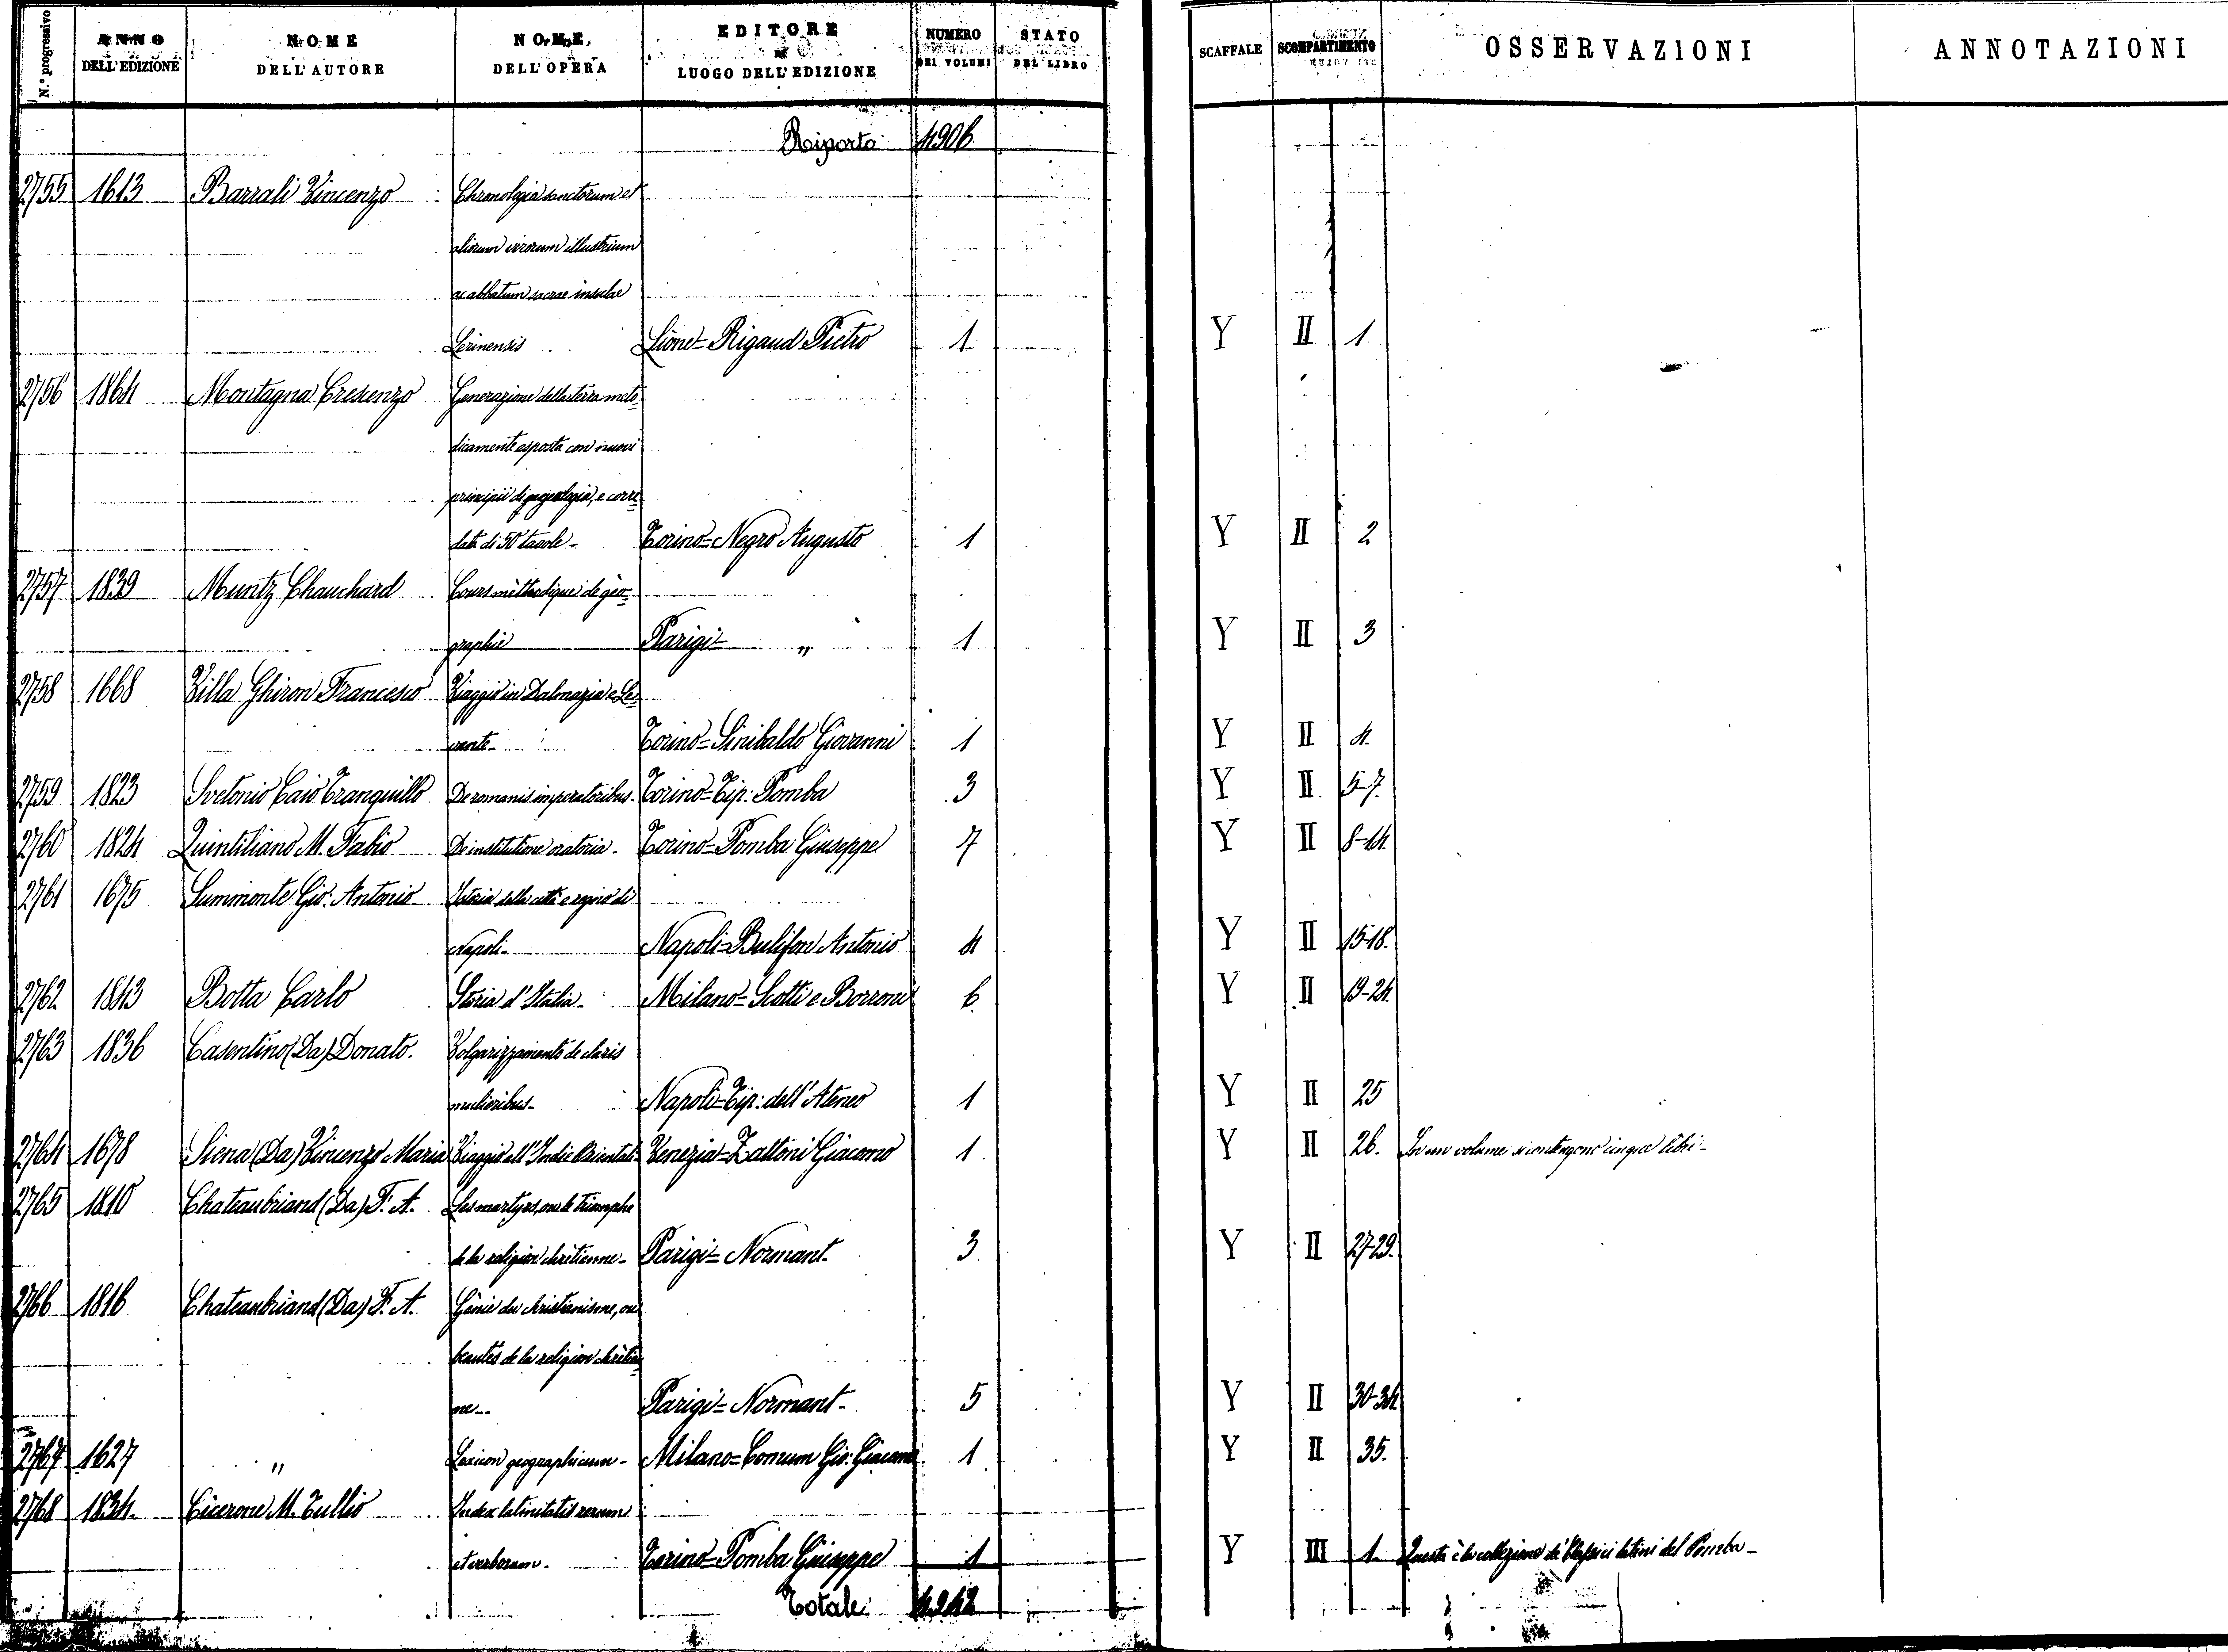 N.° progressivo ANNO DELL'EDIZIONE NOME DELL'AUTORE NOME DELL'OPERA EDITORE LUOGO DELL'EDIZIONE NUMERO DEI VOLUMI STATO DEL LIBRO SCAFFALE SCOMPARTIMENTO OSSERVAZIONI ANNOTAZIONI
Riporto 4906
2755 1613 Barrali Vincenzo Chronologia sanctorum et
aliorum virorum illustrium
ac abbatum sacrae insulae
Lerinensis Lione = Rigaud Pietro 1 Y II 1
2756 1864 Montagna Cresenzo Generazione della terra meto-
dicamente esposta con nuovi
principii di geologia, e corre-
data di 50 tavole - Torino = Negro Augusto 1 Y II 2
2757 1839 Muntz Chauchard Cours mèthodique de gèo-
graphie Parigi = " 1 Y II 3
2758 1668 Villa Ghiron Francesco Viaggio in Dalmazia e Le-
vante - Torino = Sinibaldo Giovanni 1 Y II 4.
2759 1823 Svetonio Caio Tranquillo De romanis imperatoribus - Torino = Tip: Pomba 3 Y II 5-7.
2760 1824 Quintiliano M. Fabio De institutione oratoria - Torino = Pomba Giuseppe 7 Y II 8-14.
2761 1675 Summonte Gio: Antonio Istoria della città e regno di
Napoli - Napoli = Bulifon Antonio 4 Y II 15-18.
2762 1843 Botta Carlo Storia d'Italia - Milano = Scotti e Borroni 6. Y II 19-24.
2763 1836 Casentino (Da) Donato. Volgarizzamento de claris
mulieribus - Napoli = Tip: dell'Ateneo 1 Y II 25
2764 1678 Siena (Da) Vincenzo Maria Viaggio all'Indie Orientali Venezia = Zattoni Giacomo 1. Y II 26. In un volume si contengono cinque libri -
2765 1810 Chateaubriand (Da) F. A. Les martyrs, ou le triomphe
de la religion chrètienne - Parigi = Normant - 3. Y II 27-29.
2766 1816 Chateaubriand (Da) F. A. Gènie du christianisme, ou
beautès de la religion chrètien-
ne - Parigi = Normant - 5 Y II 30-34
2767 1627 " Lexicon geographicum - Milano = Gio: Giacomo 1 Y II 35.
2768 1834. Cicerone M. Tullio Index latinitatis rerum
et verborum - Torino = Pomba Giuseppe 1 Y III 1. Questa è la collezione de' Classici latini del Pomba -
Totale: 4942